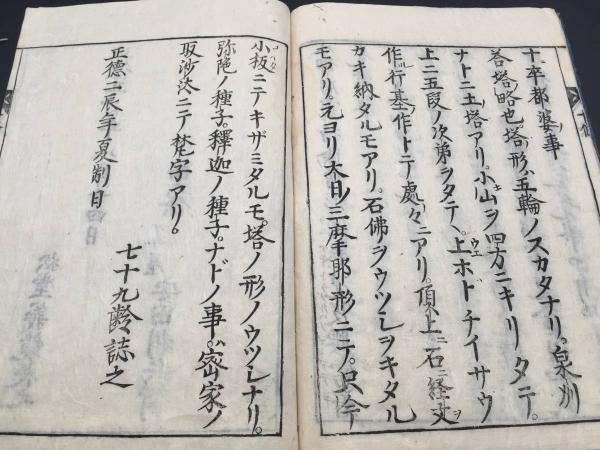 十卒都婆ノ事
答塔略也塔ノ形ハ五輪ノスカタナリ。泉州
ナトニ土塔アリ。小山ヲ四方ニキリタテ。
上ニ五段ノ次第ヲタテヘ。上ウエホドチイサウ
作ル行基ノ作トテ處々ニアリ。頂上ニ石ニ経文ヲ
カキ納タルモアリ。石佛ヲウツシヲキタル
モアリ。元ヨリ大日ノ三摩耶形ニテ。只今
小板ニテキザミタルモ。塔ノ形ノウツシナリ。
弥陀ノ種子。釋迦ノ種子。ナドノ事。密家ノ
取沙汰ニテ梵字アリ。
正德二辰年夏削日
七十九齡誌之